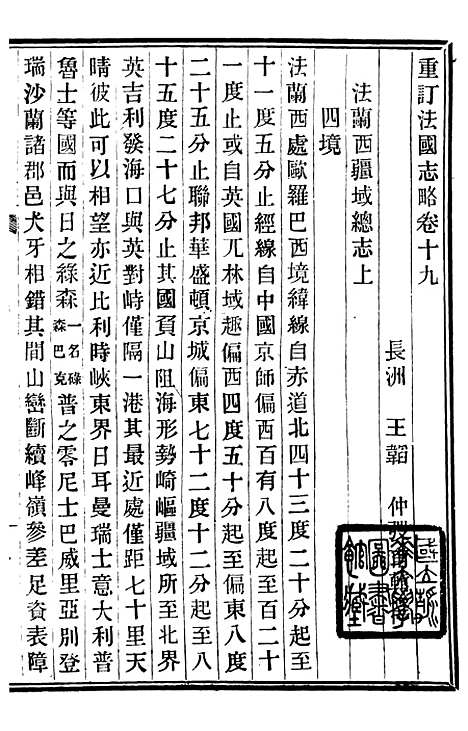 重訂法國志略卷十九
長洲 王韜 仲
法蘭西疆域總志上
四境
法蘭西處歐羅巴西境緯線自赤道北四十三度二十分起至五
十一度五分止經線自中國京師偏西百有八度起至百二十
一度止或自英國兀林域趣偏西四度五十分起至偏東八度
二十五分止聯邦華盛頓京城偏東七十二度十二分起至八
十五度二十七分止其國頁山阻海形勢崎嶇疆域所至北界
英吉利發海口與英對峙僅隔一港其最近處僅距七十里天
晴彼此可以相望亦近比利時峽東界日耳曼瑞士意大利普
魯士等國而與日之綠森一名碌森巴克普之零尼士巴威里亞別登
瑞沙蘭諸郡邑犬牙相錯其間山巒斷續峰嶺參差足資表障